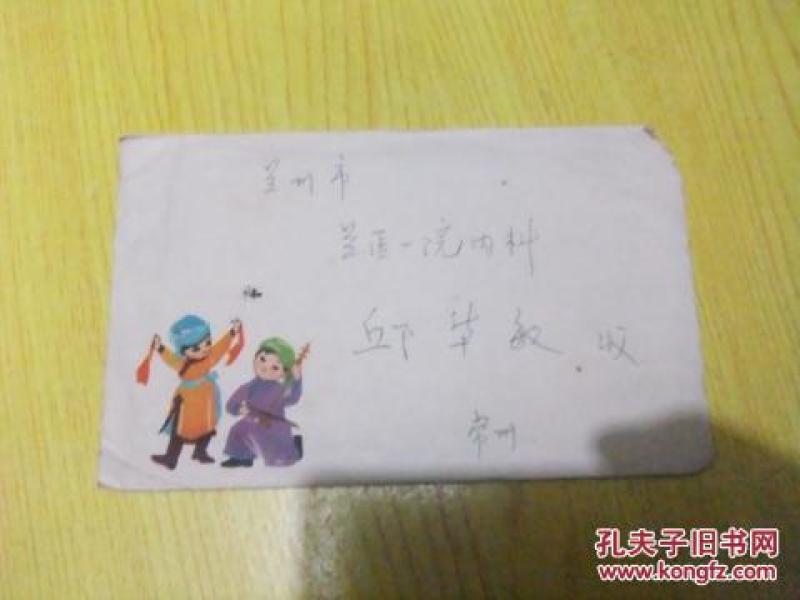 兰州市
兰医一院内科
邱华敏 收
常州
孔夫子旧书网
www.kongfz.com